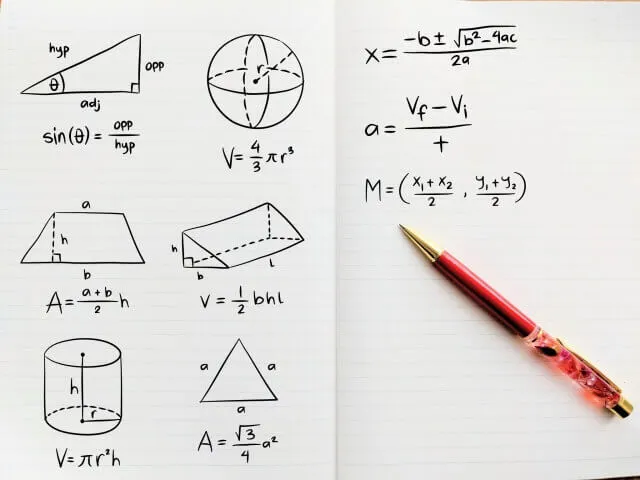 hyp
opp
θ
adj
sin(θ) = opp/hyp
r
V = 4/3 πr³
a
h
b
A = a+b/2 h
h
b
l
V = 1/2 bhl
h
r
V = πr²h
a
a
a
A = √3/4 a²
x = -b ± √b²-4ac / 2a
a = Vf - Vi / t
M = (x₁ + x₂ / 2 , y₁ + y₂ / 2)